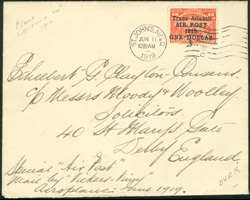 ST. JOHN'S, NFLD
JUN 11
1030AM
1919
Trans-Atlantic
AIR POST
1919
ONE DOLLAR
G. Clayton
c/o Messrs Moody & Woolley
Solicitors
40 St Mary's Gate
Derby
England
Special "Air Post"
Mail by Vickers-Vimy
Aeroplane June 1919.